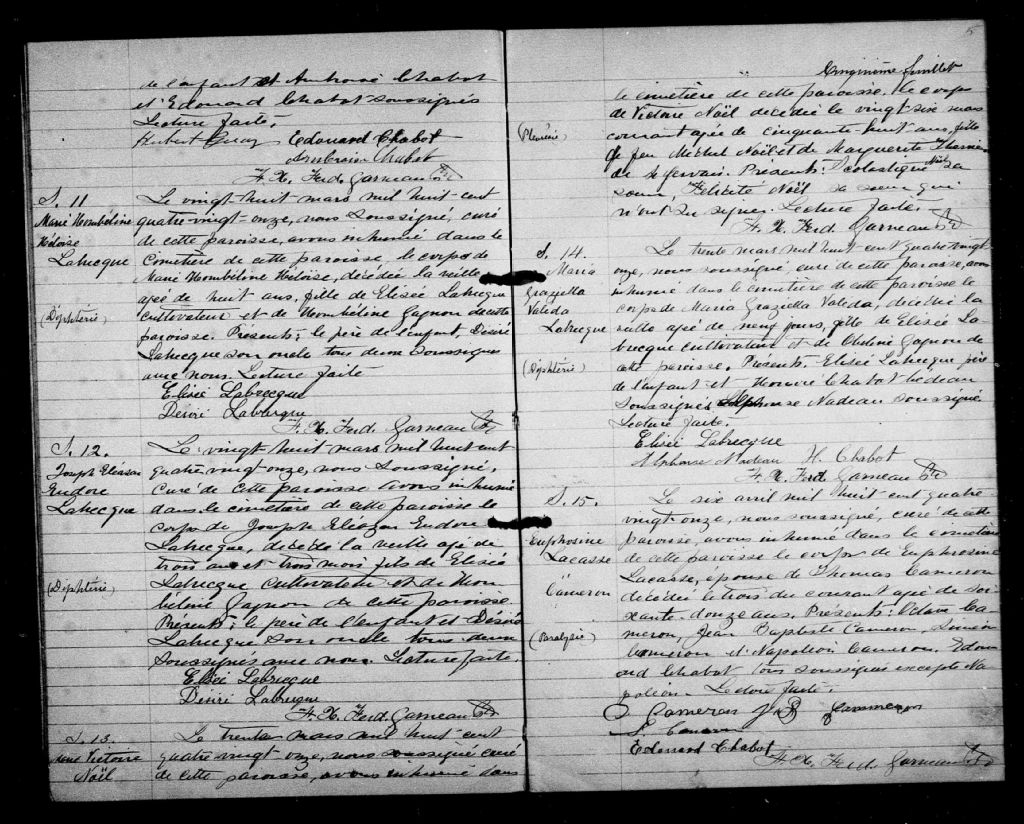 de l'enfant et Ambroise Chabot
et Edouard Chabot soussignés
Lecture faite.
Edouard Chabot
Ambroise Chabot
F. X. Ferd. Garneau Ptr
S. 11
Marie Hombéline
Héloïse
Labrecque
(Diphtérie)
Le vingt huit mars mil huit cent
quatre vingt onze, nous soussigné, curé
de cette paroisse, avons inhumé dans le
Cimetière de cette paroisse, le corps de
Marie Hombéline Héloïse, décédée la veille
agée de huit ans, fille de Elisée Labrecque
cultivateur et de Hombéline Gagnon de cette
paroisse. Présents : le père de l'enfant, Désiré
Labrecque son oncle tous deux soussignés
avec nous. Lecture faite
Elisée Labrecque
Désiré Labrecque
F. X. Ferd. Garneau Ptr
S. 12.
Joseph Eléazar
Eudore
Labrecque
(Diphtérie)
Le vingt huit mars mil huit cent
quatre vingt onze, nous soussigné,
Curé de cette paroisse avons inhumé
dans le cimetière de cette paroisse le
corps de Joseph Eléazar Eudore
Labrecque, décédé la veille agé de
trois ans et trois mois fils de Elisée
Labrecque cultivateur et de Hom
béline Gagnon de cette paroisse.
Présents : le père de l'enfant et Désiré
Labrecque son oncle tous deux
soussignés avec nous. Lecture faite.
Elisée Labrecque
Désiré Labrecque
F. X. Ferd. Garneau Ptr
S. 13.
Victoire
Noël
Le trente mars mil huit cent
quatre vingt onze, nous soussigné curé
de cette paroisse, avons inhumé dans
5
Cinquième feuillet
(Pleurésie)
le cimetière de cette paroisse, le corps
de Victoire Noël décédée le vingt six mars
courant agée de cinquante huit ans, fille
de feu Michel Noël et de Marguerite
de St Gervais. Présents : Scolastique Noël sa
soeur Félicité Noël sa soeur qui
n'ont su signer. Lecture faite.
F. X. Ferd. Garneau Ptr
S. 14.
Maria
Graziella
Valéda
Labrecque
(Diphtérie)
Le trente mars mil huit cent quatre vingt
onze, nous soussigné, curé de cette paroisse, avons
inhumé dans le cimetière de cette paroisse le
corps de Maria Graziella Valéda, décédée la
veille agée de neuf jours, fille de Elisée La
brecque cultivateur et de Gagnon de
cette paroisse. Présents : Elisée Labrecque père
de l'enfant et Honoré Chabot bedeau
soussignés Alphonse Nadeau soussigné
Lecture faite.
Elisée Labrecque
Alphonse Nadeau H. Chabot
F. X. Ferd. Garneau Ptr
S. 15.
Euphrosine
Lacasse
Cameron
(Paralysie)
Le six avril mil huit cent quatre
vingt onze, nous soussigné, curé de cette
paroisse, avons inhumé dans le cimetière
de cette paroisse le corps de Euphrosine
Lacasse, épouse de Thomas Cameron
décédée le trois du courant agée de soi
xante douze ans. Présents : Octave Ca
meron, Jean Baptiste Cameron, Siméon
Cameron et Napoléon Cameron. Edou
ard Chabot tous soussignés excepté Na
poléon. Lecture faite.
O Cameron J B Cameron
S. Cameron
Edouard Chabot
F. X. Ferd. Garneau Ptr